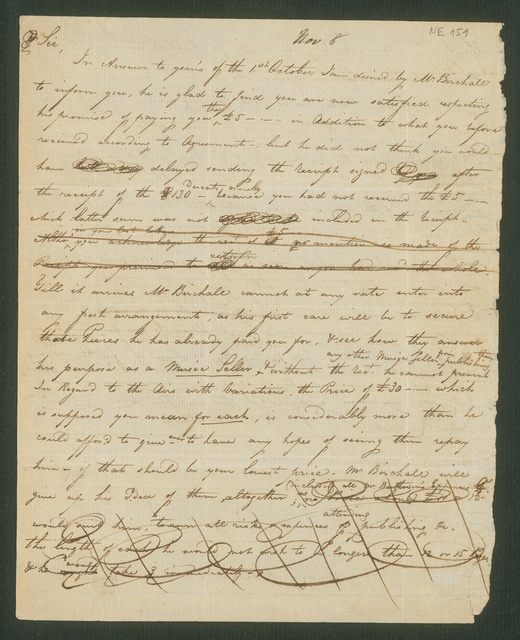 Nov 8
NE 151
Sir,
In Answer to yours of the 1st October I am desired by Mr Birchall
to inform you, he is glad to find you are now satisfied respecting
his promise of paying you £5 in Addition to what you before
received according to Agreement; but he did not think you would
have delayed sending the receipt signed after
the receipt of the £130 because you had not received the £5
which latter sum was not included in the receipt.
in your last letter
you acknowledge the £5 mention is made of the
Receipt you promised to
Till it arrives Mr Birchall cannot at any rate enter into
any fresh arrangement, as his first care will be to secure
those Pieces he has already paid you for, & see how they answer
any other Music Seller from publishing them
his purpose as a Music Seller & without the rect he cannot prevent
In Regard to the Airs with Variations, the Price of £30 which
is supposed you mean for each, is considerably more than he
could afford to give to have any hopes of seeing them repay
him if that should be your lowest price. Mr Birchall will
give up his Idea of them altogether
attending
would him, all risk & expences of publishing &c.
the length of each he would not wish to be longer than 12 or 15 Pages
& he would take 3 immediately